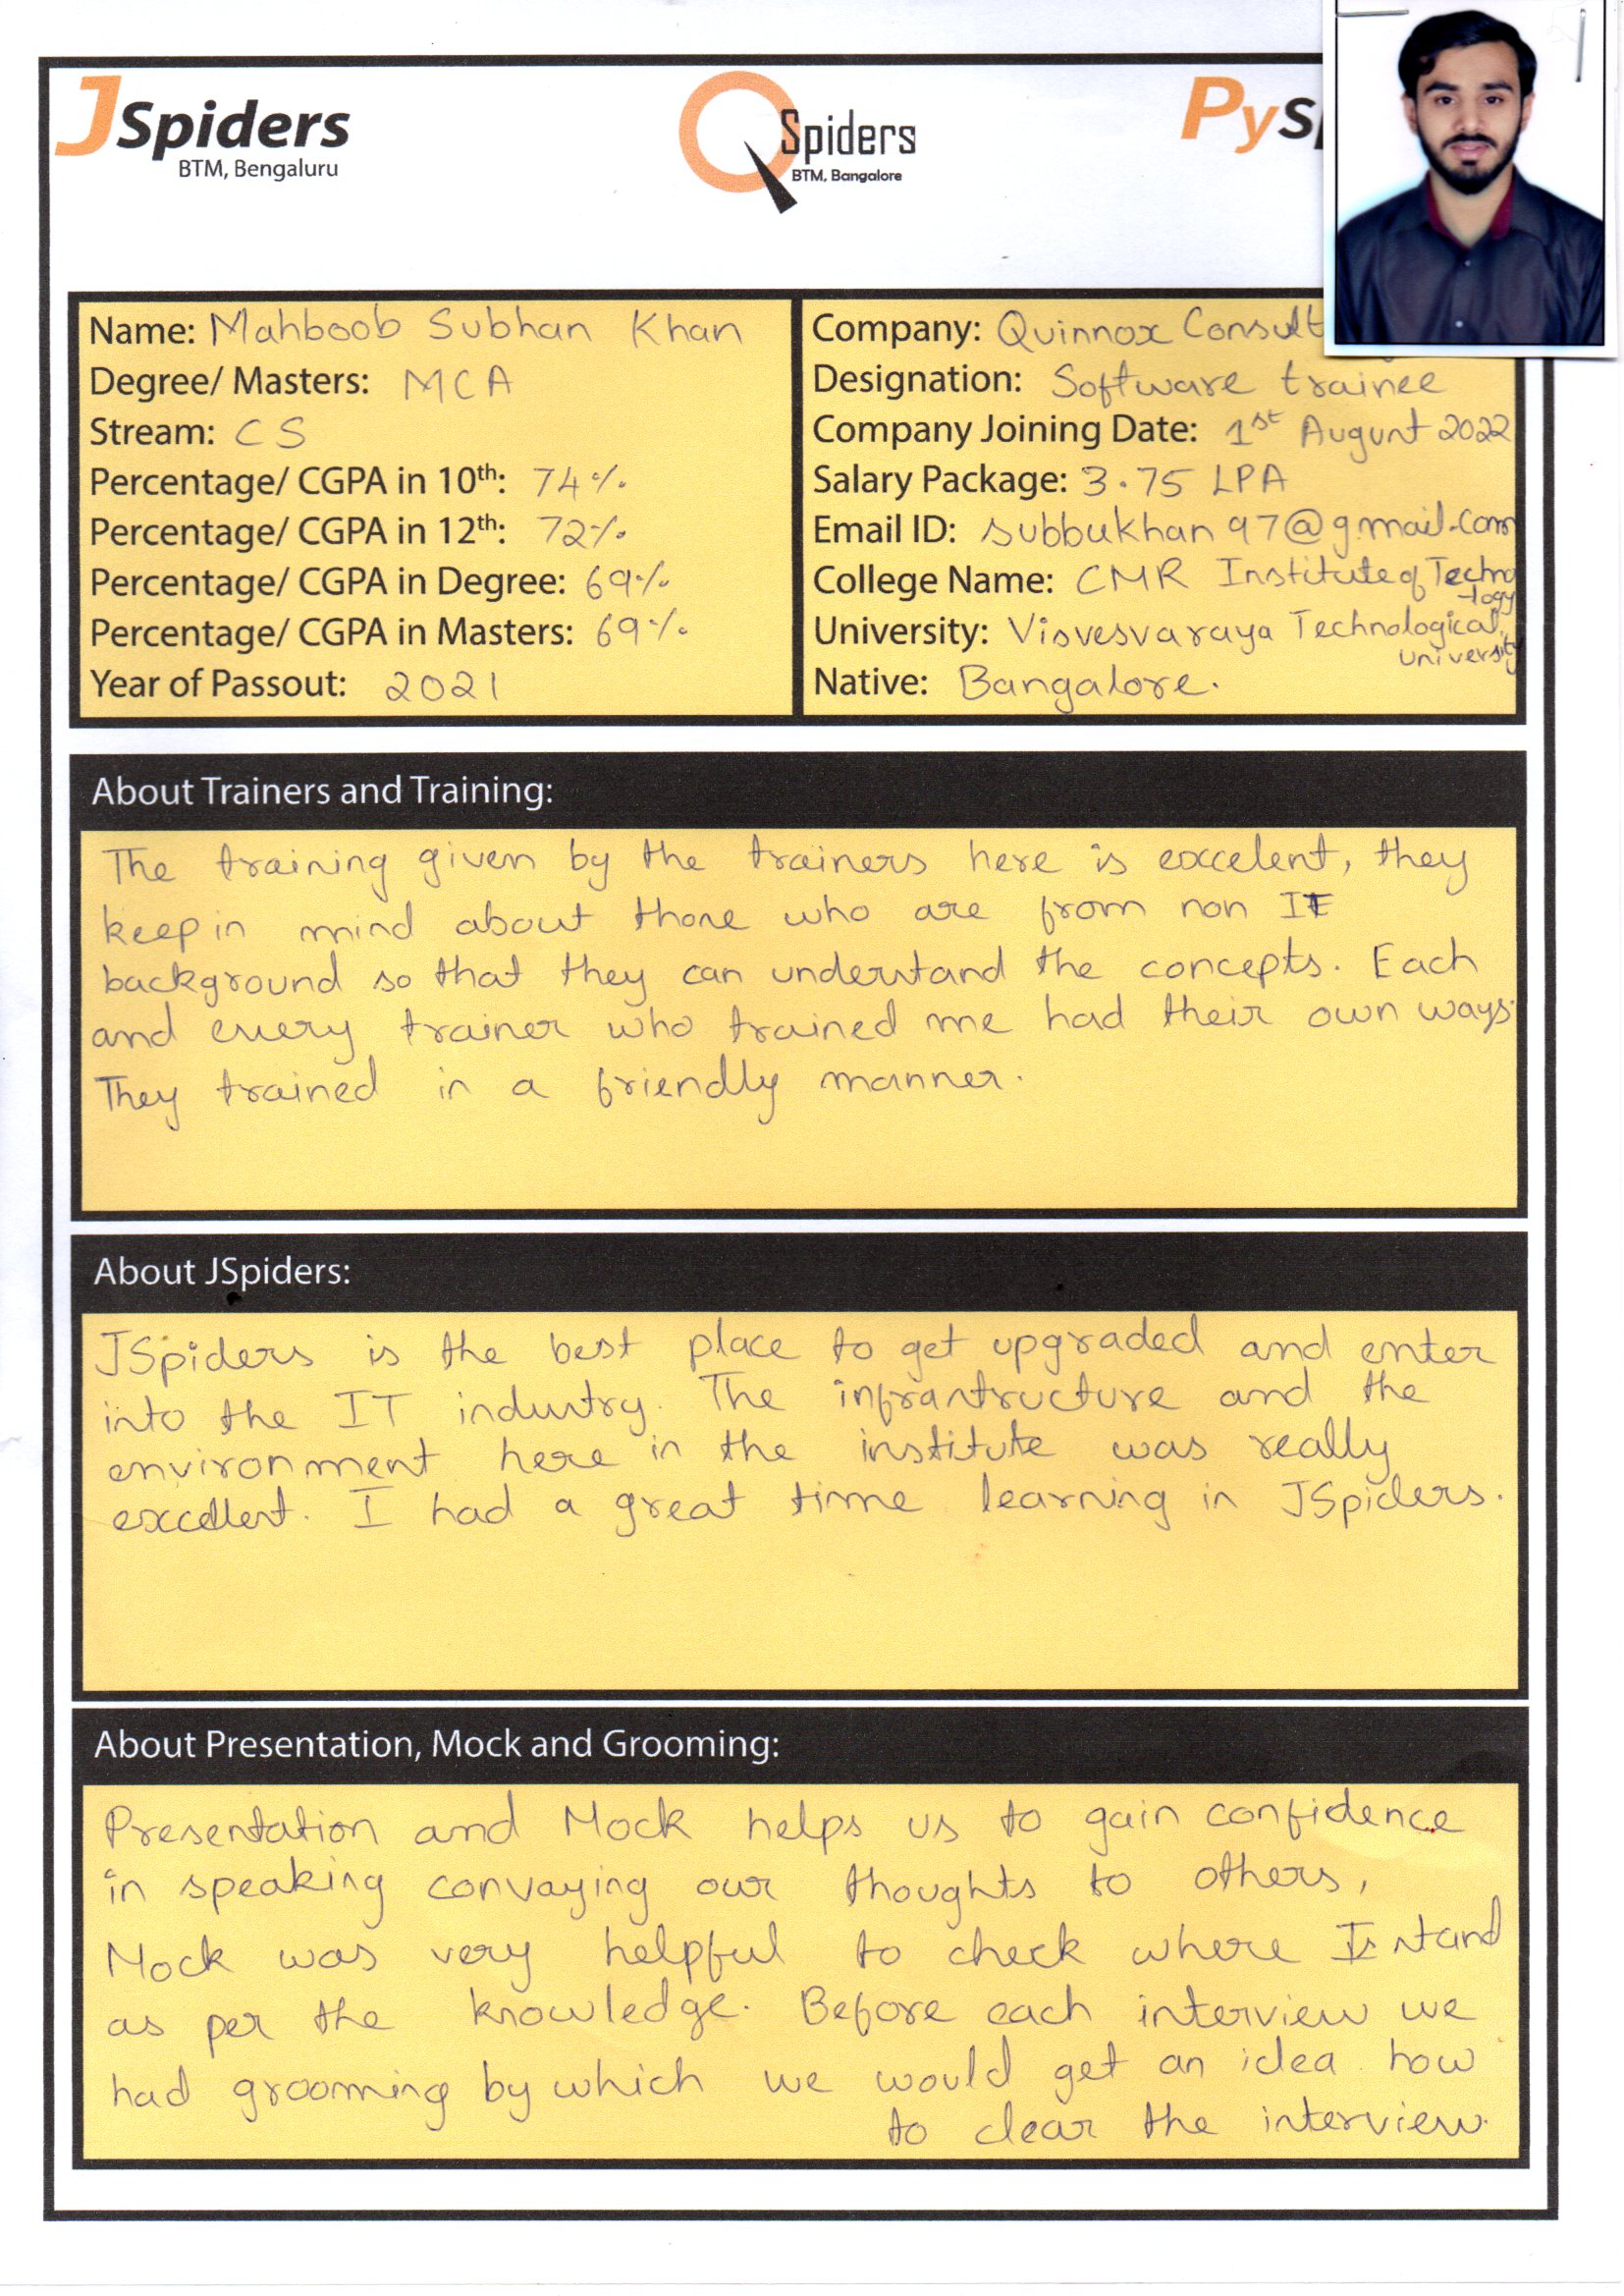 JSpiders
BTM, Bengaluru
QSpiders
BTM, Bangalore
PySp
Name: Mahboob Subhan Khan
Degree/ Masters: MCA
Stream: CS
Percentage/ CGPA in 10th: 74%
Percentage/ CGPA in 12th: 72%
Percentage/ CGPA in Degree: 69%
Percentage/ CGPA in Masters: 69%
Year of Passout: 2021
Company: Quinnox Consult
Designation: Software trainee
Company Joining Date: 1st August 2022
Salary Package: 3.75 LPA
Email ID: subbukhan97@gmail.com
College Name: CMR Institute of Techno
-logy
University: Visvesvaraya Technological
University
Native: Bangalore.
About Trainers and Training:
The training given by the trainers here is excelent, they
keep in mind about those who are from non IT
background so that they can understand the concepts. Each
and every trainer who trained me had their own ways.
They trained in a friendly manner.
About JSpiders:
JSpiders is the best place to get upgraded and enter
into the IT industry. The infrastructure and the
environment here in the institute was really
excellent. I had a great time learning in JSpiders.
About Presentation, Mock and Grooming:
Presentation and Mock helps us to gain confidence
in speaking convaying our thoughts to others,
Mock was very helpful to check where I stand
as per the knowledge. Before each interview we
had grooming by which we would get an idea how
to clear the interview.